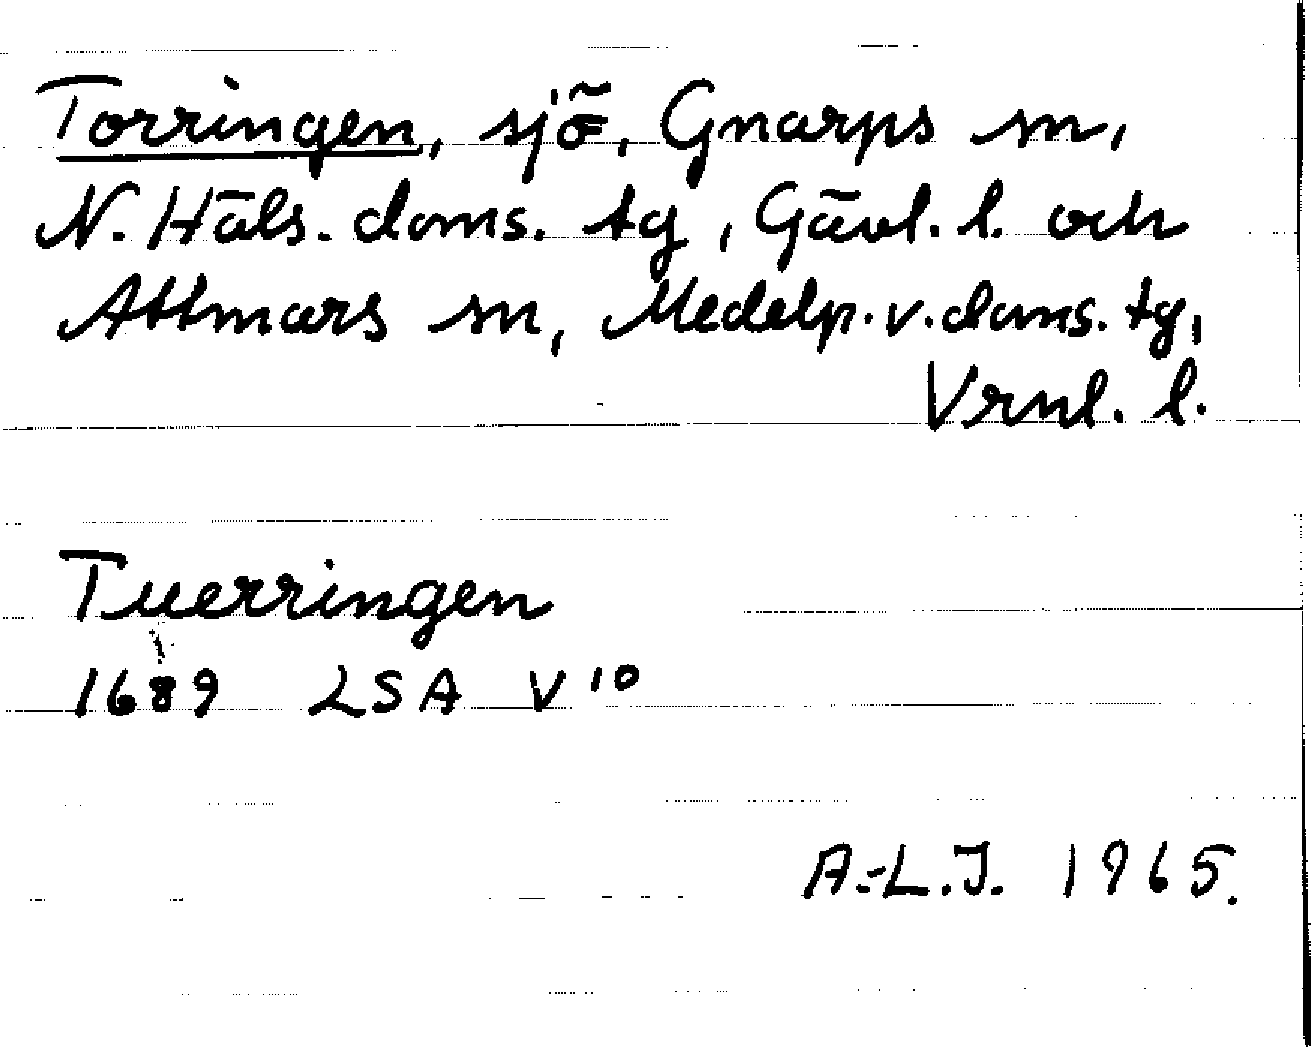 Torringen, sjö, Gnarps sn,
N. Häls. doms. tg, Gävl. l. och
Attmars sn, Medelp. v. doms. tg,
Vrnl. l.
Tuerringen
1689 LSA V 10
A.-L.J. 1965.